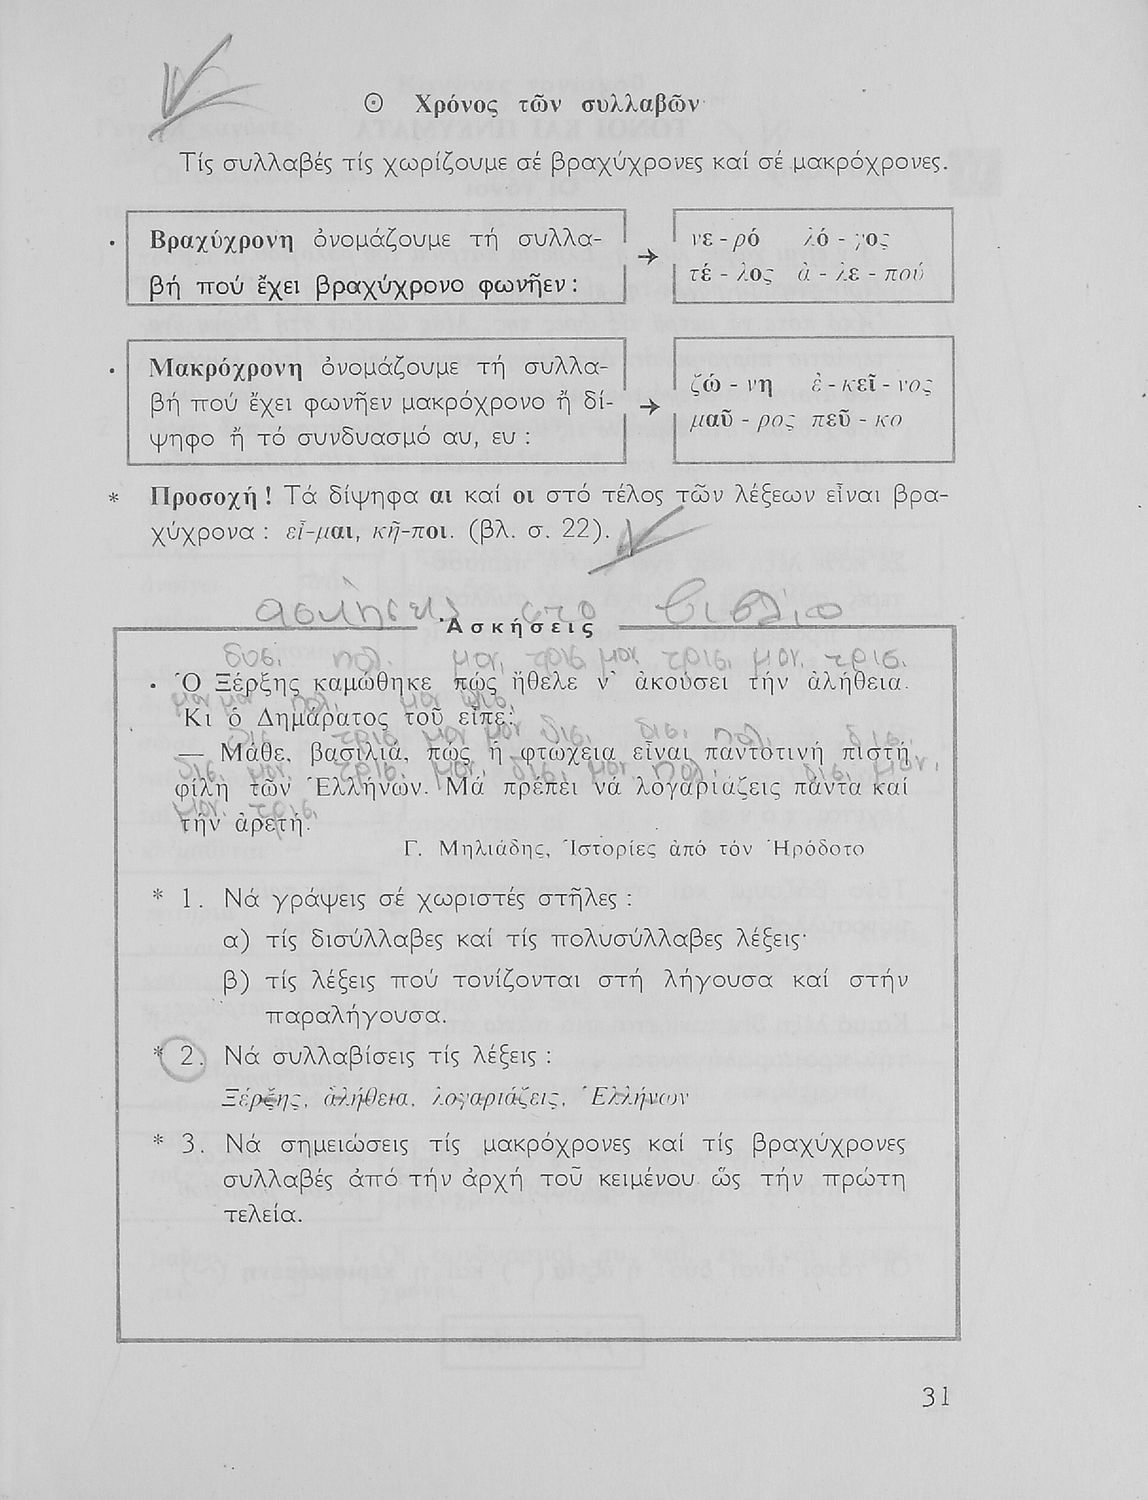 ⊙ Χρόνος τῶν συλλαβῶν
Τίς συλλαβές τίς χωρίζουμε σέ βραχύχρονες καί σέ μακρόχρονες.
· Βραχύχρονη ὀνομάζουμε τή συλλα-
βή πού ἔχει βραχύχρονο φωνῆεν :
→
νε - ρό λό - γος
τέ - λος ἀ - λε - πού
· Μακρόχρονη ὀνομάζουμε τή συλλα-
βή πού ἔχει φωνῆεν μακρόχρονο ἤ δί-
ψηφο ἤ τό συνδυασμό αυ, ευ :
→
ζώ - νη ἐ - κεῖ - νος
μαῦ - ρος πεῦ - κο
* Προσοχή ! Τά δίψηφα αι καί οι στό τέλος τῶν λέξεων εἶναι βρα-
χύχρονα : εἶ-μαι, κῆ-ποι. (βλ. σ. 22).
ασκήσεις στο βιβλίο
Ἀσκήσεις
δυσ. πολ. μον. τρισ. μον. τρισ. μον. τρισ.
· Ὁ Ξέρξης καμώθηκε πώς ἤθελε ν' ἀκούσει τήν ἀλήθεια.
Κι ὁ Δημάρατος τοῦ εἶπε:
— Μάθε, βασιλιά, πώς ἡ φτώχεια εἶναι παντοτινή πιστή
φίλη τῶν Ἑλλήνων. Μά πρέπει νά λογαριάζεις πάντα καί
τήν ἀρετή.
Γ. Μηλιάδης, Ἱστορίες ἀπό τόν Ἡρόδοτο
* 1. Νά γράψεις σέ χωριστές στῆλες :
α) τίς δισύλλαβες καί τίς πολυσύλλαβες λέξεις·
β) τίς λέξεις πού τονίζονται στή λήγουσα καί στήν
παραλήγουσα.
* 2. Νά συλλαβίσεις τίς λέξεις :
Ξέρξης, ἀλήθεια, λογαριάζεις, Ἑλλήνων
* 3. Νά σημειώσεις τίς μακρόχρονες καί τίς βραχύχρονες
συλλαβές ἀπό τήν ἀρχή τοῦ κειμένου ὥς τήν πρώτη
τελεία.
31